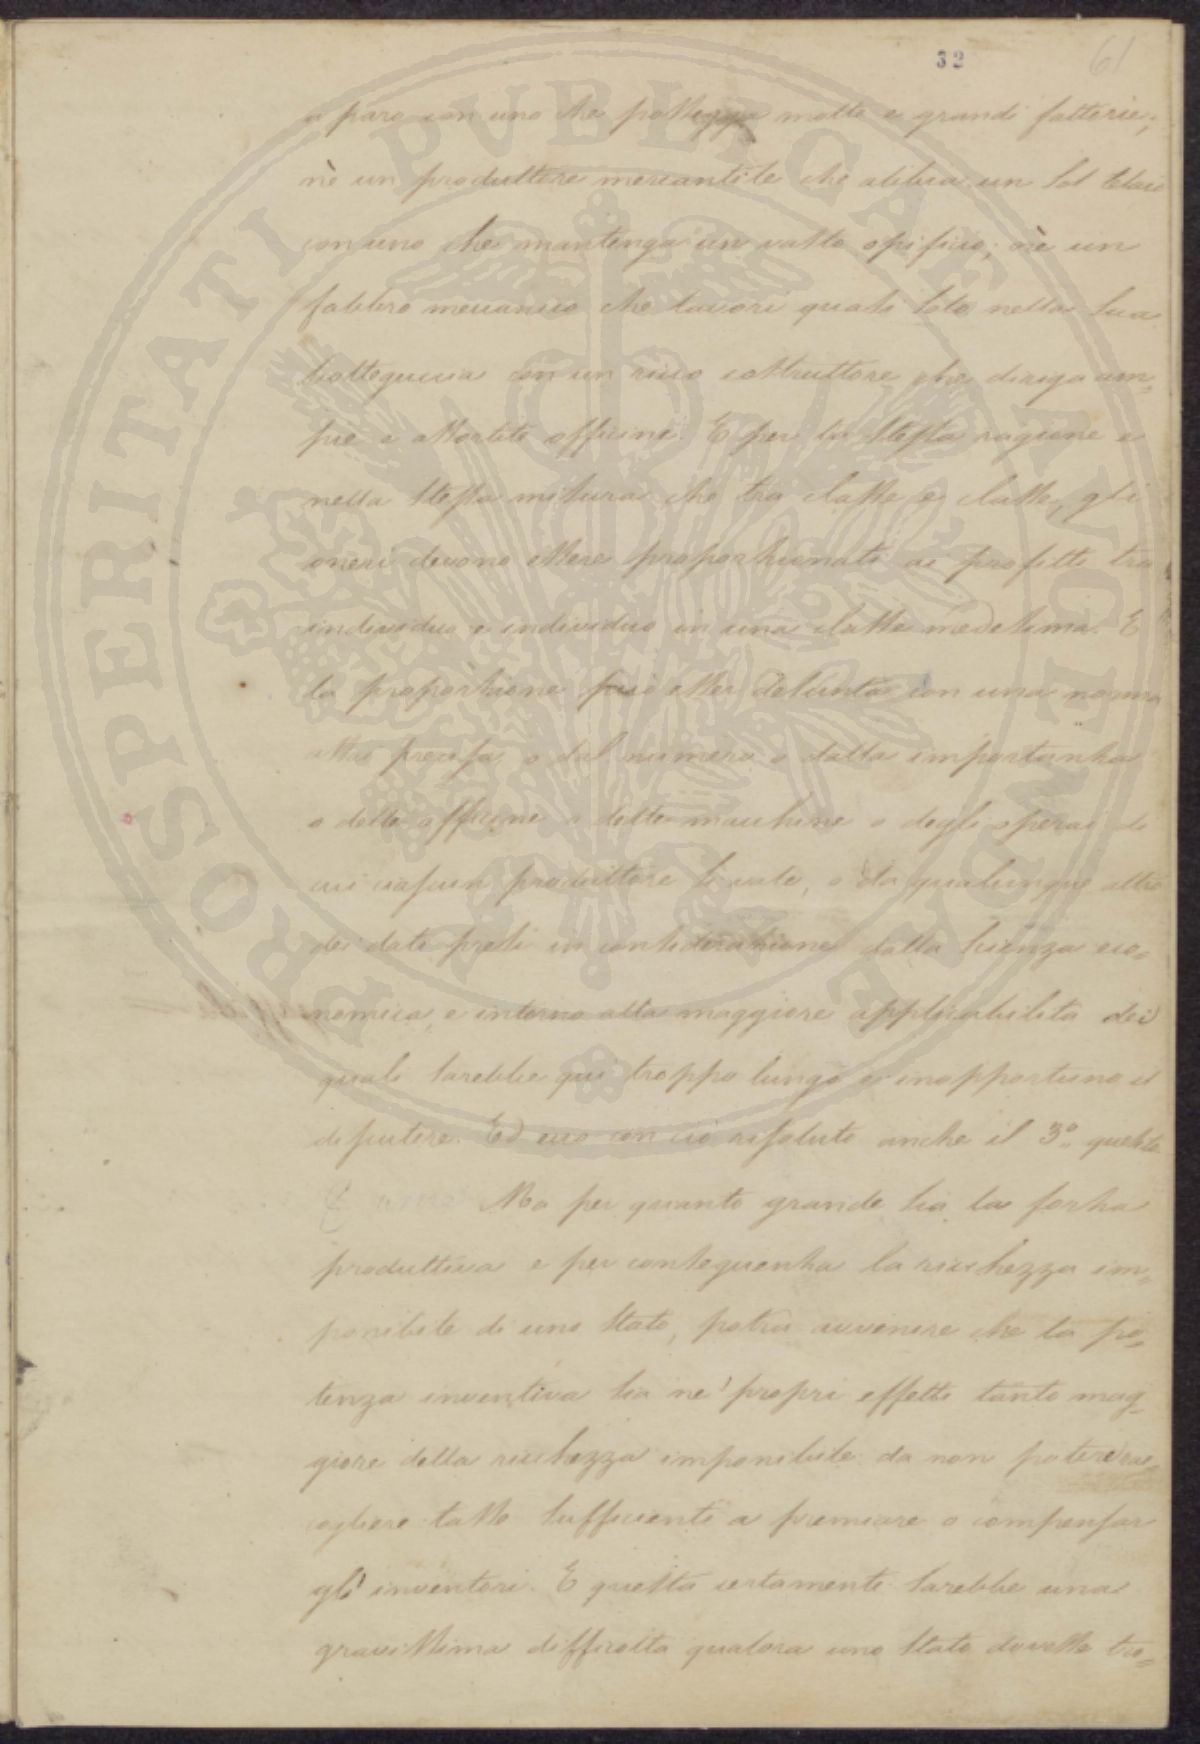 32
61
a paro con uno che possegga molte e grandi fattorie;
nè un produttore mercantile che abbia un sol telaio
con uno che mantenga un vasto opificio; nè un
fabbro meccanico che lavori quasi solo nella sua
botteguccia con un ricco costruttore che diriga am=
pie e assortite officine. E per la stessa ragione e
nella stessa misura che tra classe e classe, gli
oneri devono essere proporzionati ai profitti tra
individuo e individuo in una classe medesima. E
la proporzione può esser desunta con una norma
assai precisa, o dal numero o dalla importanza
o delle officine o delle macchine o degli operai di
cui ciascun produttore si vale, o da qualunque altro
dei dati presi in considerazione dalla scienza eco=
nomica, e intorno alla maggiore applicabilità dei
quali sarebbe qui troppo lungo e inopportuno il
disputere. Ed ecco con ciò risoluto anche il 3º quesito.
Ma per quanto grande sia la forza
produttiva e per conseguenza la ricchezza im=
ponibile di uno Stato, potria avvenire che la po=
tenza inventiva sia ne' propri effetti tanto mag=
giore della ricchezza imponibile da non poter rac=
cogliere tasse sufficienti a premiare o compensar
gl' inventori. E questa certamente sarebbe una
gravissima difficoltà qualora uno Stato dovesse tro=
PROSPERITATI PVBLICAE AVGENDAE